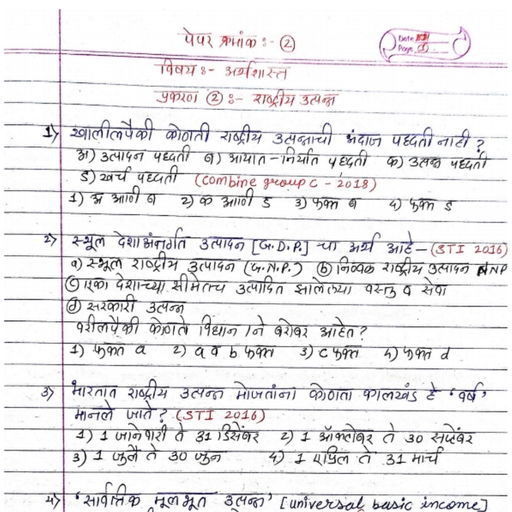 पेपर क्रमांक :- (2)
Date
Page (1)
विषय :- अर्थशास्त्र
प्रकरण (2) :- राष्ट्रीय उत्पन्न
1) खालीलपैकी कोणती राष्ट्रीय उत्पन्नाची अंदाज पध्दती नाही ?
अ) उत्पादन पध्दती ब) आयात-निर्यात पध्दती क) उत्पन्न पध्दती
ड) खर्च पध्दती (combine group C - 2018)
1) अ आणी ब 2) क आणी ड 3) फक्त ब 4) फक्त ड
2) स्थूल देशाअंतर्गत उत्पादन [G.D.P.] चा अर्थ आहे - (STI 2016)
a) स्थूल राष्ट्रीय उत्पादन (G.N.P.) (b) निव्वळ राष्ट्रीय उत्पादन NNP
(c) एका देशाच्या सीमेतच उत्पादित झालेल्या वस्तु व सेवा
(d) सरकारी उत्पन्न
वरीलपैकी कोणते विधान /ने बरोबर आहेत ?
1) फक्त a 2) a व b फक्त 3) c फक्त 4) फक्त d
3) भारतात राष्ट्रीय उत्पन्न मोजतांना कोणता कालखंड हे 'वर्ष'
मानले जाते ? (STI 2016)
1) 1 जानेवारी ते 31 डिसेंबर 2) 1 ऑक्टोबर ते 30 सप्टेंबर
3) 1 जुलै ते 30 जुन 4) 1 एप्रिल ते 31 मार्च
4) 'सार्वत्रिक मूलभूत उत्पन्न' [universal basic income]